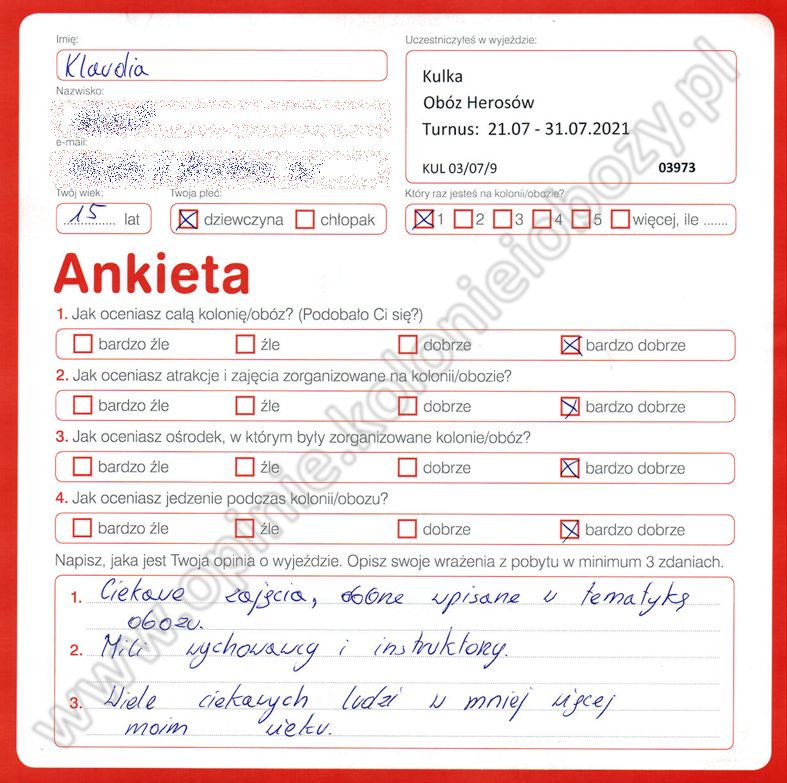 Imię:
Klaudia
Nazwisko:
e-mail:
Twój wiek:
15 lat
Twoja płeć:
dziewczyna chłopak
Uczestniczyłeś w wyjeździe:
Kulka
Obóz Herosów
Turnus: 21.07 - 31.07.2021
KUL 03/07/9 03973
Który raz jesteś na kolonii/obozie?
1 2 3 4 5 więcej, ile .......
Ankieta
1. Jak oceniasz całą kolonię/obóz? (Podobało Ci się?)
bardzo źle źle dobrze bardzo dobrze
2. Jak oceniasz atrakcje i zajęcia zorganizowane na kolonii/obozie?
bardzo źle źle dobrze bardzo dobrze
3. Jak oceniasz ośrodek, w którym były zorganizowane kolonie/obóz?
bardzo źle źle dobrze bardzo dobrze
4. Jak oceniasz jedzenie podczas kolonii/obozu?
bardzo źle źle dobrze bardzo dobrze
Napisz, jaka jest Twoja opinia o wyjeździe. Opisz swoje wrażenia z pobytu w minimum 3 zdaniach.
1. Ciekawe zajęcia, wpisane w tematykę
obozu.
2. Mili wychowawcy i instruktorzy.
3. Wiele ciekawych ludzi w mniej więcej
moim wieku.
www.opinie.kolonieiobozy.pl